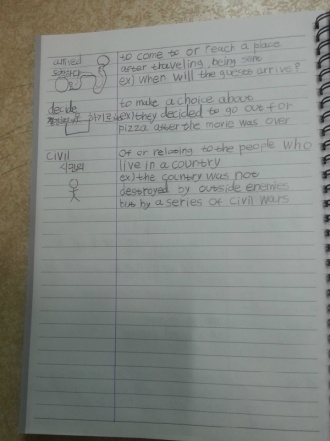 arrived
to come to or reach a place
after traveling, being sent
ex) when will the guests arrive?
decide
to make a choice about
ex) they decided to go out for
pizza after the movie was over
civil
시민의
of or relating to the people who
live in a country
ex) the country was not
destroyed by outside enemies
but by a series of civil wars